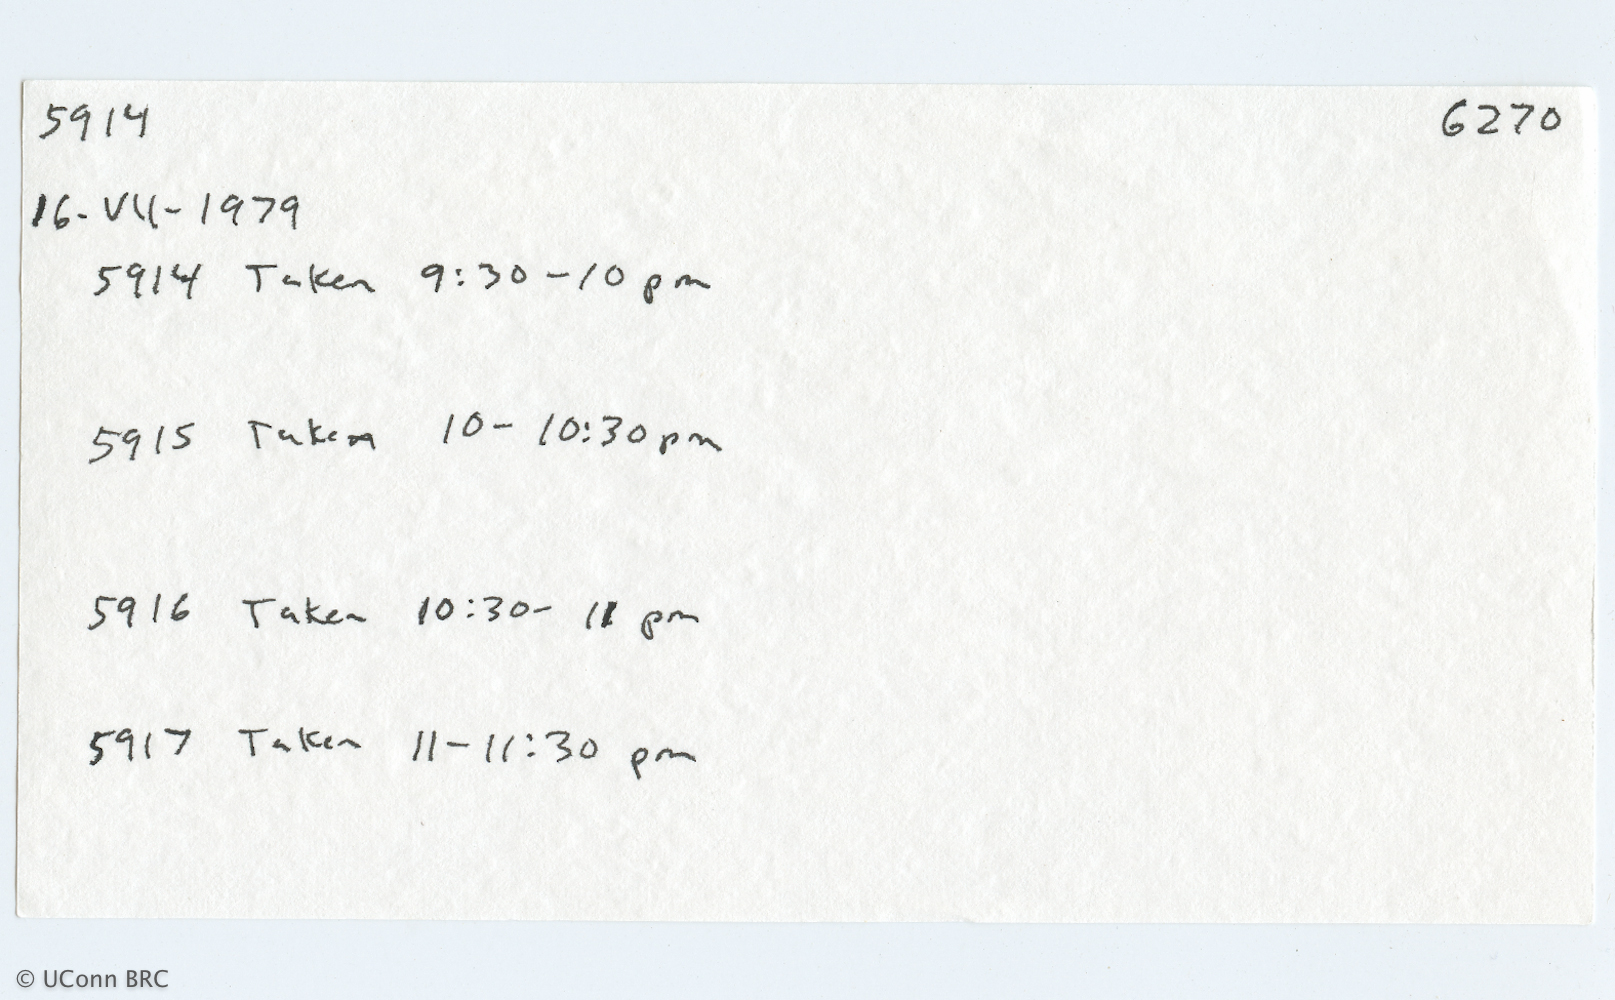 5914 6270
16-VII-1979
5914 Taken 9:30-10 pm
5915 Taken 10-10:30pm
5916 Taken 10:30-11 pm
5917 Taken 11-11:30 pm
© UConn BRC